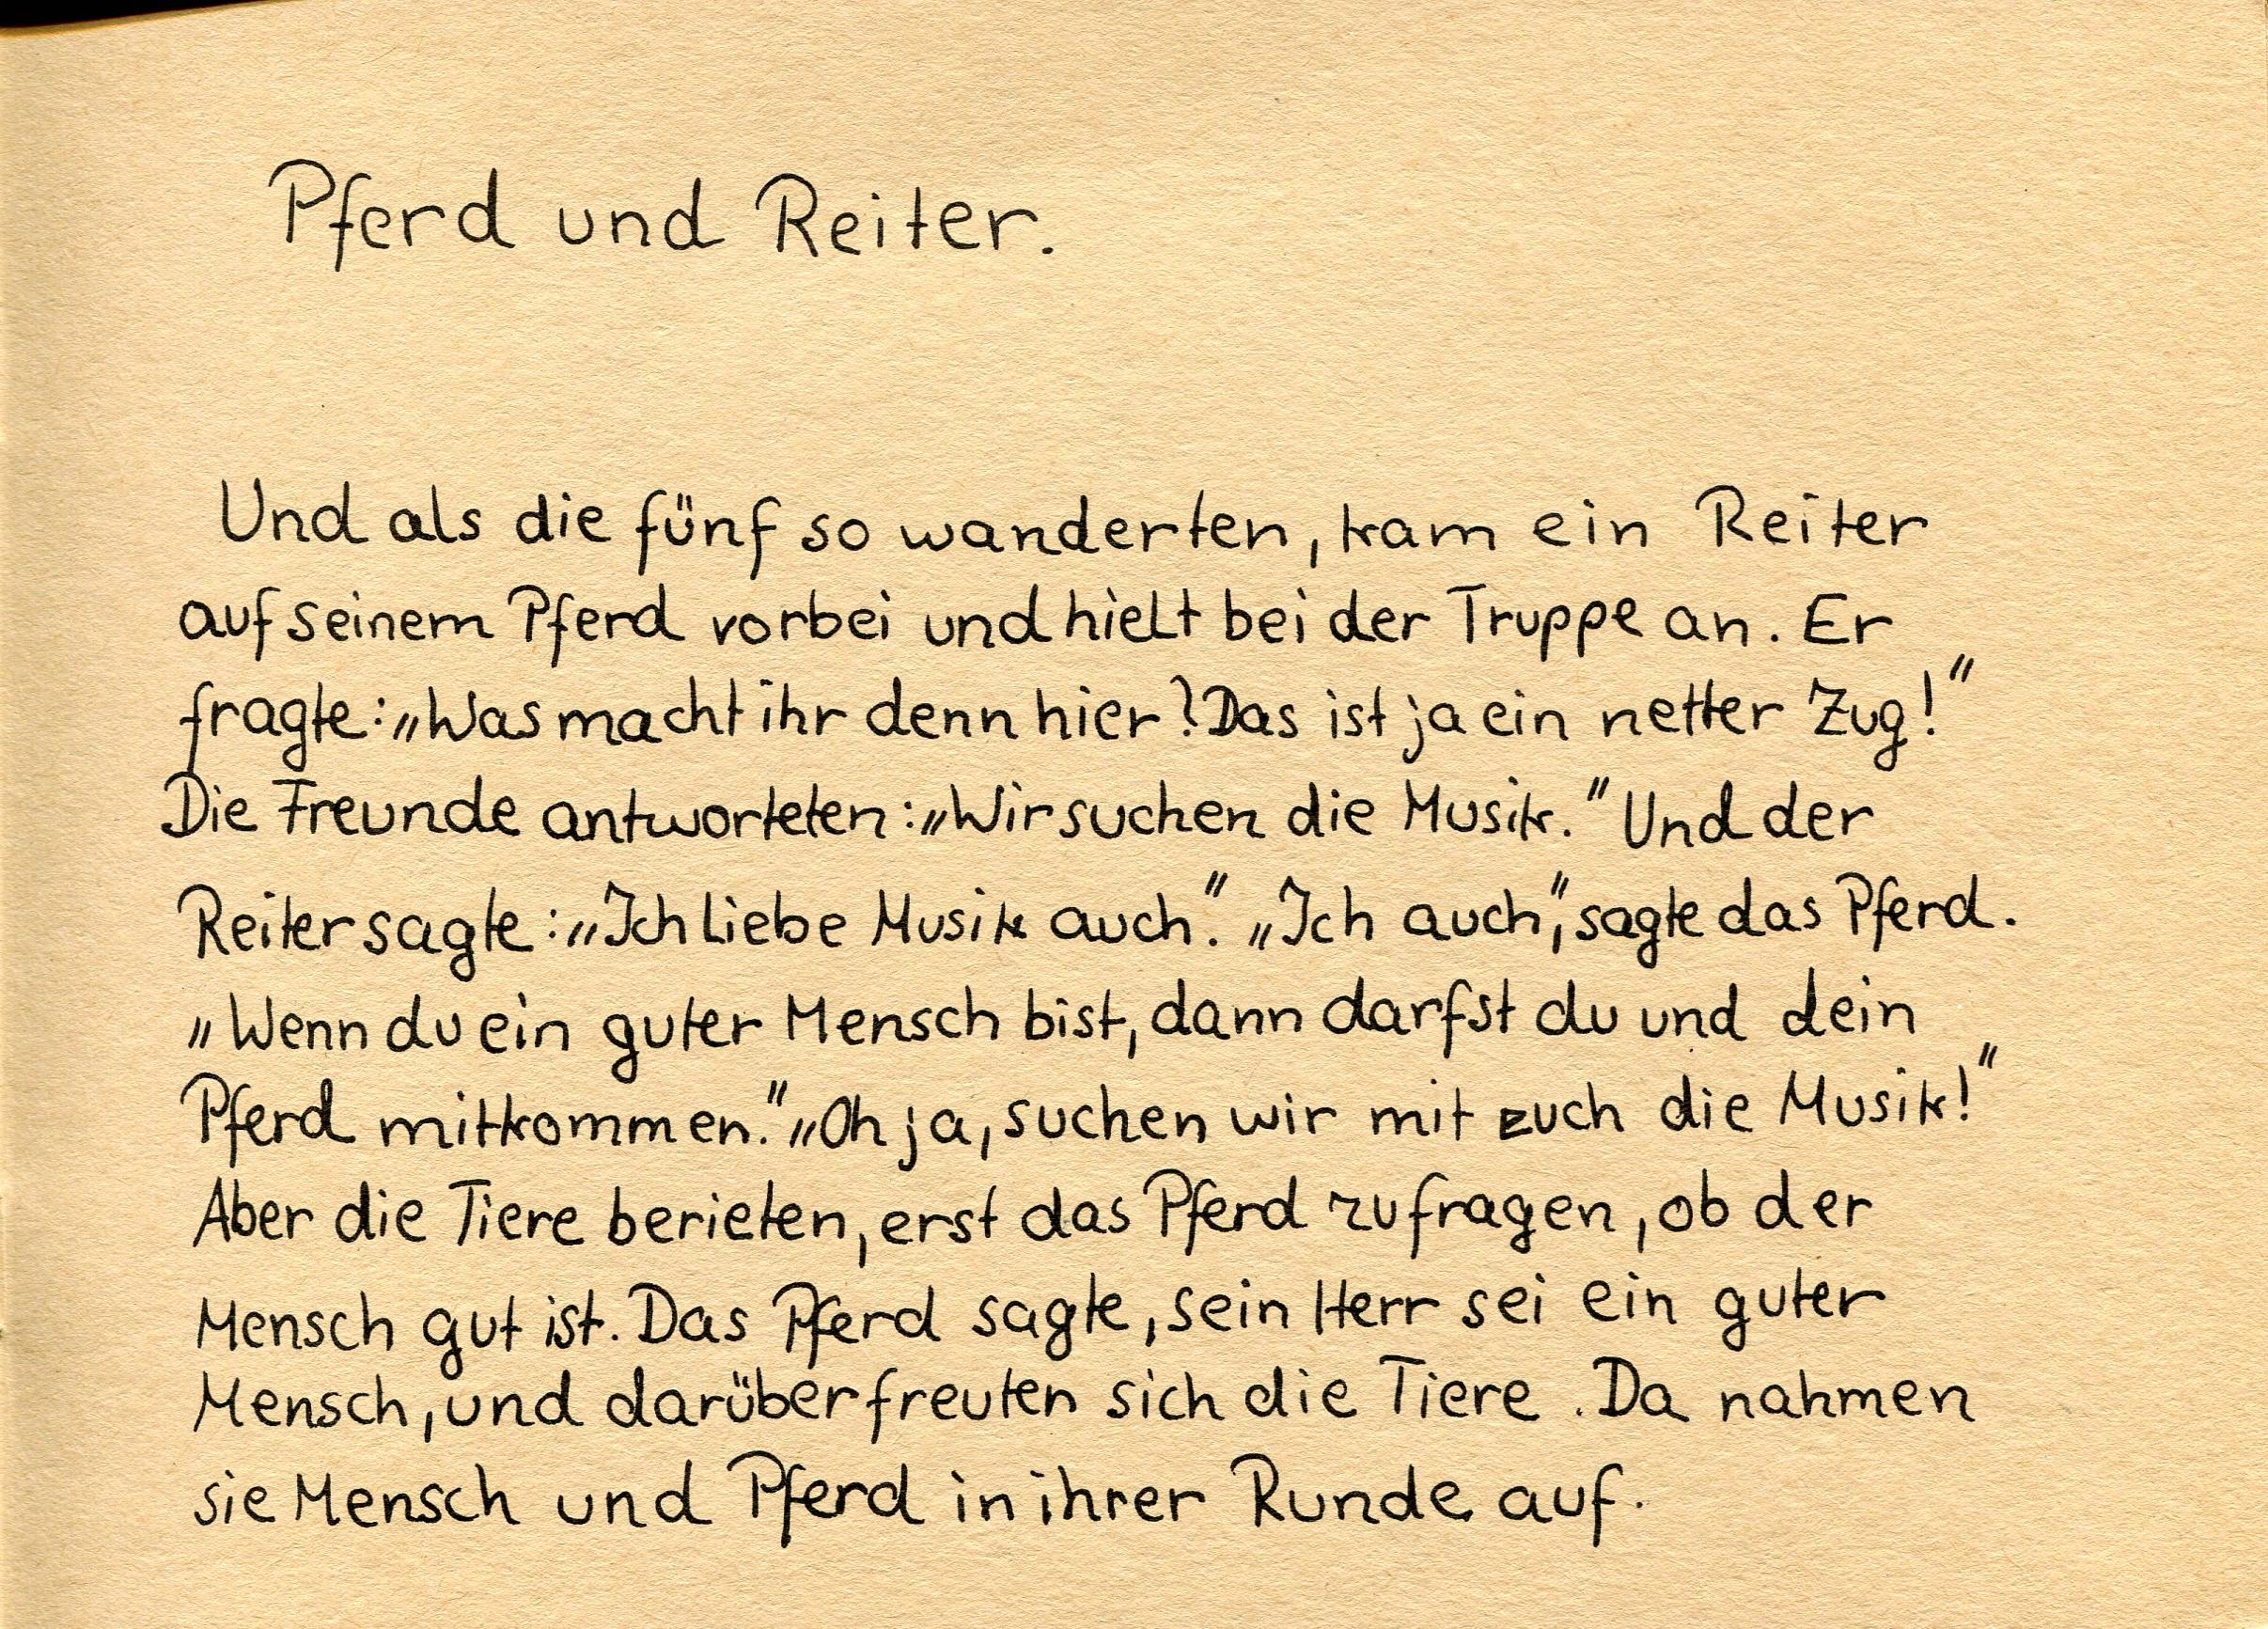 Pferd und Reiter.
Und als die fünf so wanderten, kam ein Reiter
auf seinem Pferd vorbei und hielt bei der Truppe an. Er
fragte: „Was macht ihr denn hier? Das ist ja ein netter Zug!“
Die Freunde antworteten: „Wir suchen die Musik.“ Und der
Reiter sagte: „Ich liebe Musik auch.“ „Ich auch“, sagte das Pferd.
„Wenn du ein guter Mensch bist, dann darfst du und dein
Pferd mitkommen.“ „Oh ja, suchen wir mit Euch die Musik!“
Aber die Tiere berieten, erst das Pferd zu fragen, ob der
Mensch gut ist. Das Pferd sagte, sein Herr sei ein guter
Mensch, und darüber freuten sich die Tiere. Da nahmen
sie Mensch und Pferd in ihrer Runde auf.